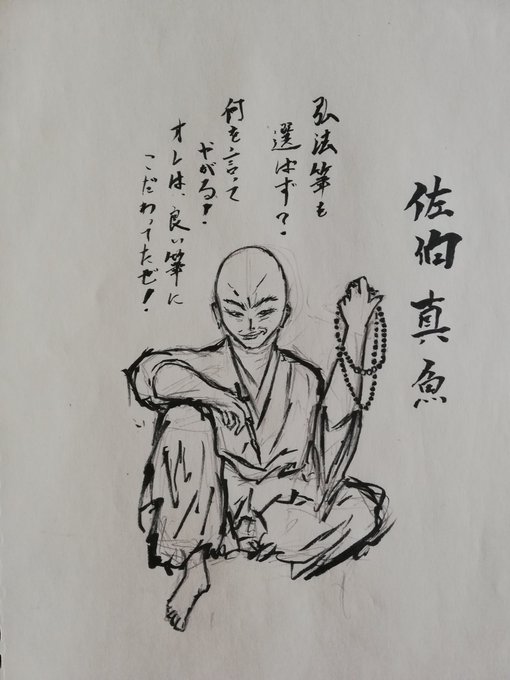 佐伯 真魚
弘法筆を
選ばず？
何を言って
やがる！
オレは、良い筆に
こだわってたぜ！